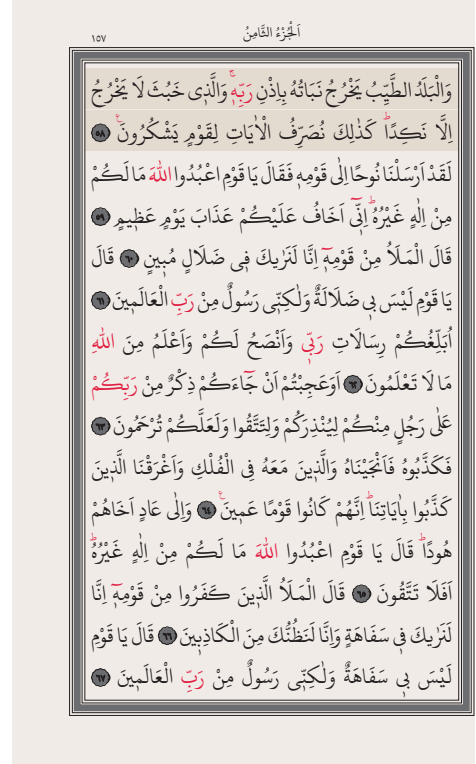 اَلْجُزْءُ الثَّامِنُ
١٥٧
وَالْبَلَدُ الطَّيِّبُ يَخْرُجُ نَبَاتُهُ بِاِذْنِ رَبِّهٖۚ وَالَّذٖى خَبُثَ لَا يَخْرُجُ
اِلَّا نَكِدًاۜ كَذٰلِكَ نُصَرِّفُ الْاٰيَاتِ لِقَوْمٍ يَشْكُرُونَۚ ﴿٥٨﴾
لَقَدْ اَرْسَلْنَا نُوحًا اِلٰى قَوْمِهٖ فَقَالَ يَا قَوْمِ اعْبُدُوا اللّٰهَ مَا لَكُمْ
مِنْ اِلٰهٍ غَيْرُهُۜ اِنّٖٓى اَخَافُ عَلَيْكُمْ عَذَابَ يَوْمٍ عَظٖيمٍ ﴿٥٩﴾
قَالَ الْمَلَاُ مِنْ قَوْمِهٖٓ اِنَّا لَنَرٰيكَ فٖى ضَلَالٍ مُبٖينٍ ﴿٦٠﴾ قَالَ
يَا قَوْمِ لَيْسَ بٖى ضَلَالَةٌ وَلٰكِنّٖى رَسُولٌ مِنْ رَبِّ الْعَالَمٖينَ ﴿٦١﴾
اُبَلِّغُكُمْ رِسَالَاتِ رَبّٖى وَاَنْصَحُ لَكُمْ وَاَعْلَمُ مِنَ اللّٰهِ
مَا لَا تَعْلَمُونَ ﴿٦٢﴾ اَوَعَجِبْتُمْ اَنْ جَٓاءَكُمْ ذِكْرٌ مِنْ رَبِّكُمْ
عَلٰى رَجُلٍ مِنْكُمْ لِيُنْذِرَكُمْ وَلِتَتَّقُوا وَلَعَلَّكُمْ تُرْحَمُونَ ﴿٦٣﴾
فَكَذَّبُوهُ فَاَنْجَيْنَاهُ وَالَّذٖينَ مَعَهُ فِى الْفُلْكِ وَاَغْرَقْنَا الَّذٖينَ
كَذَّبُوا بِاٰيَاتِنَاۜ اِنَّهُمْ كَانُوا قَوْمًا عَمٖينَۚ ﴿٦٤﴾ وَاِلٰى عَادٍ اَخَاهُمْ
هُودًاۜ قَالَ يَا قَوْمِ اعْبُدُوا اللّٰهَ مَا لَكُمْ مِنْ اِلٰهٍ غَيْرُهُۜ
اَفَلَا تَتَّقُونَ ﴿٦٥﴾ قَالَ الْمَلَاُ الَّذٖينَ كَفَرُوا مِنْ قَوْمِهٖٓ اِنَّا
لَنَرٰيكَ فٖى سَفَاهَةٍ وَاِنَّا لَنَظُنُّكَ مِنَ الْكَاذِبٖينَ ﴿٦٦﴾ قَالَ يَا قَوْمِ
لَيْسَ بٖى سَفَاهَةٌ وَلٰكِنّٖى رَسُولٌ مِنْ رَبِّ الْعَالَمٖينَ ﴿٦٧﴾